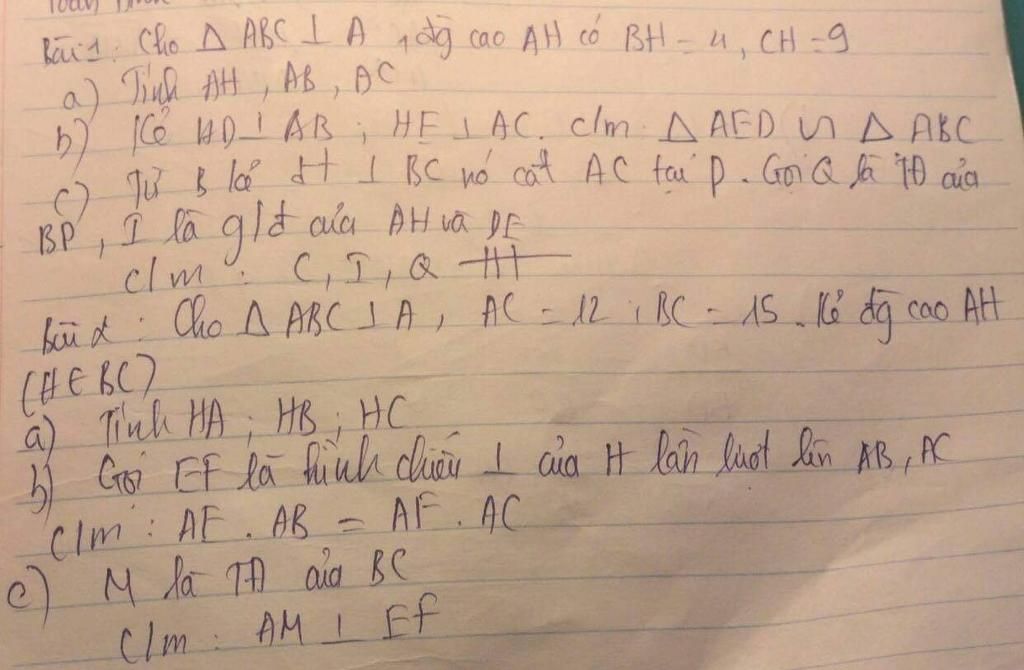 Bài 1: Cho Δ ABC ⊥ A, đg cao AH có BH = 4, CH = 9
a) Tính AH, AB, AC
b) Kẻ HD ⊥ AB; HE ⊥ AC. c/m Δ AED ∽ Δ ABC
c) Từ B kẻ đt ⊥ BC nó cắt AC tại P. Gọi Q là TĐ của
BP, I là g/đ của AH và DE
c/m: C, I, Q TH
Bài 2: Cho Δ ABC ⊥ A, AC = 12; BC = 15. Kẻ đg cao AH
(H ∈ BC)
a) Tính HA; HB; HC
b) Gọi EF là hình chiếu ⊥ của H lần lượt lên AB, AC
C/m: AE. AB = AF. AC
c) M là TĐ của BC
C/m: AM ⊥ EF